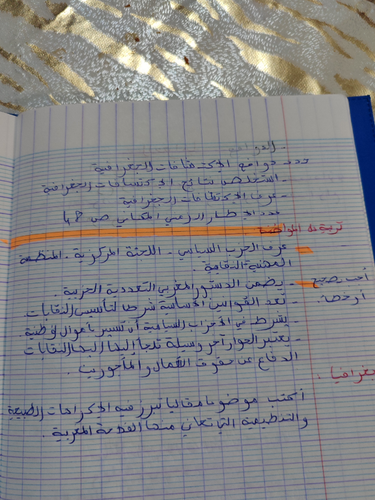 - الدوافع
حدد دوافع الاكتشافات الجغرافية
- استخلص نتائج الاكتشافات الجغرافية
- عرف الاكتشافات الجغرافية
حدد الإطار الزمني المكاني ص 48
تربية على المواطنة
عرف الحزب السياسي - اللجنة المركزية - المنظمة
المهنية النقابية.
أجب بصحيح - يضمن الدستور المغربي التعددية الحزبية.
أو خطأ. - تعد القوانين الأساسية شرطا لتأسيس النقابات
- يشترط في الأحزاب السياسية أن تسير بأموال وطنية.
- يعتبر الحوار آخر وسيلة تلجأ إليها النقابات
الدفاع عن حقوق العمال والمأجورين.
جغرافيا.
أكتب موضوعا مقاليا تبرز فيه الإكراهات الطبيعية
والتنظيمية التي تعاني منها الفلاحة المغربية.